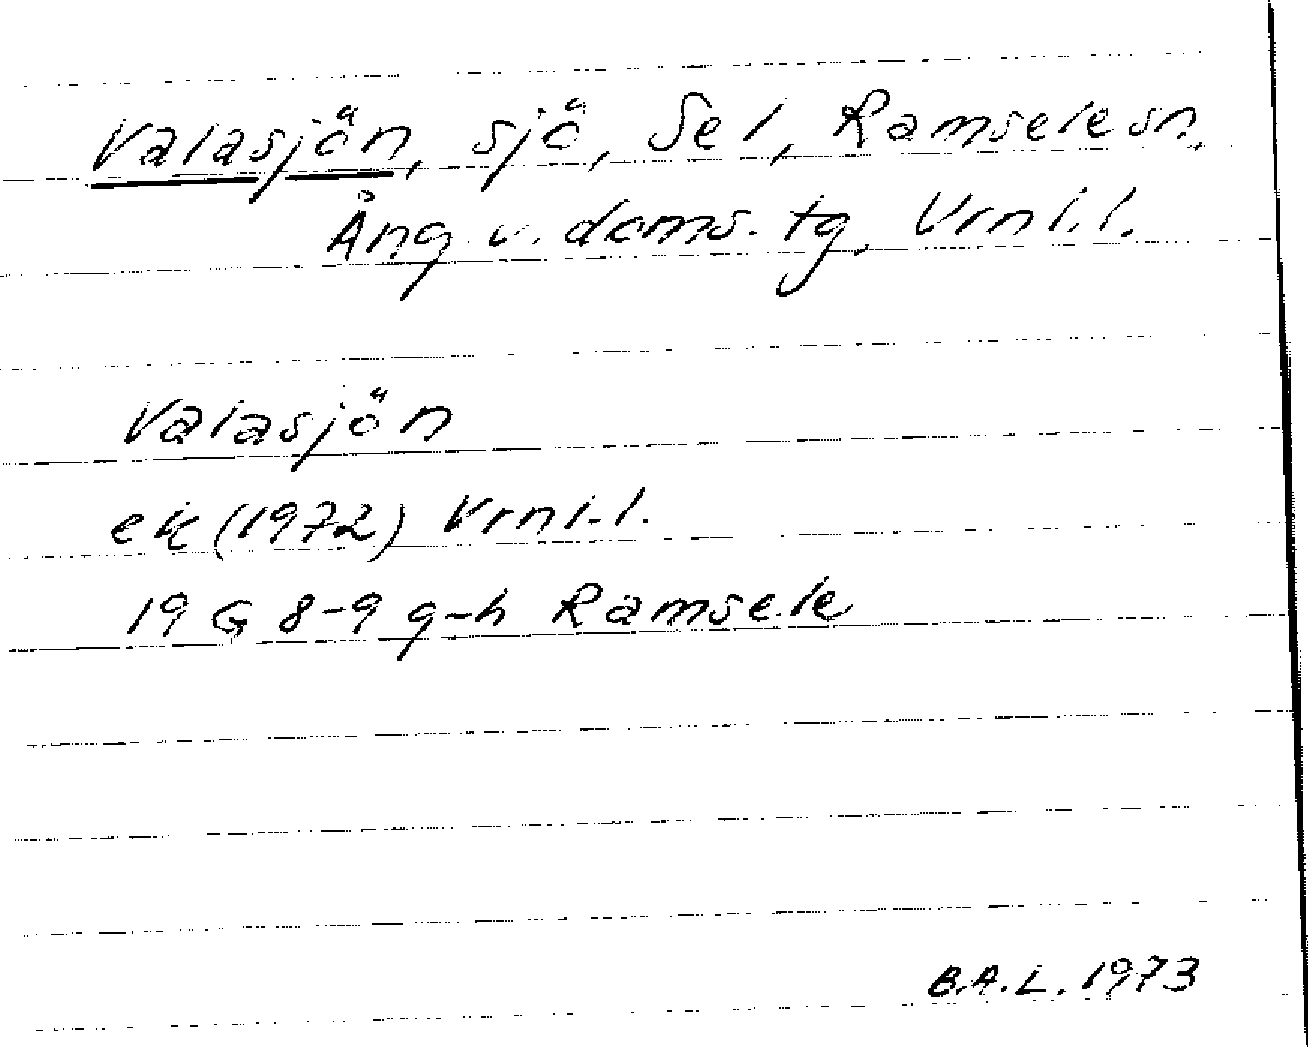 Valasjön, sjö, Sel, Ramsele sn,
Ång. v. doms. tg, Vrnl.l.
Valasjön
ek (1972) Vrnl.l.
19 G 8-9 g-h Ramsele
B.A.L. 1973